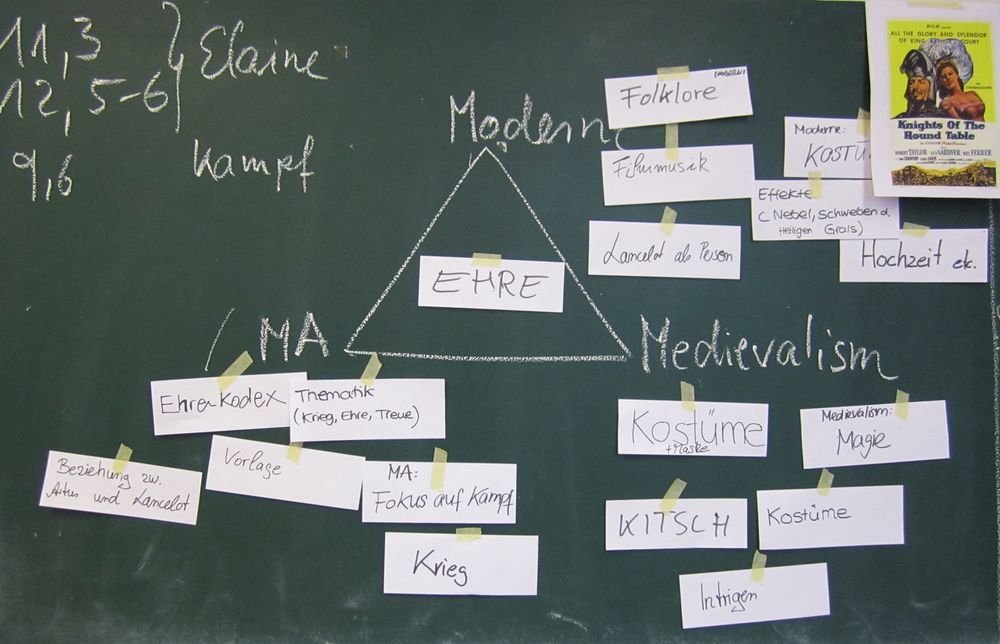 11,3
12,5-6
Elaine
9,6
Kampf
Modern
Folklore
Filmmusik
Moderne:
KOSTÜ
Effekte
(Nebel, Schweben d.
Heiligen Grals)
Lancelot als Person
Hochzeit etc.
MGM
ALL THE GLORY AND SPLENDOR
OF KING ARTHUR'S COURT
Knights Of The
Round Table
ROBERT TAYLOR AVA GARDNER MEL FERRER
EHRE
MA
Medievalism
Ehrenkodex
Thematik
(Krieg, Ehre, Treue)
Beziehung zw.
Artus und Lancelot
Vorlage
MA:
Fokus auf Kampf
Krieg
Kostüme
+Maske
Medievalism:
Magie
KITSCH
Kostüme
Intrigen